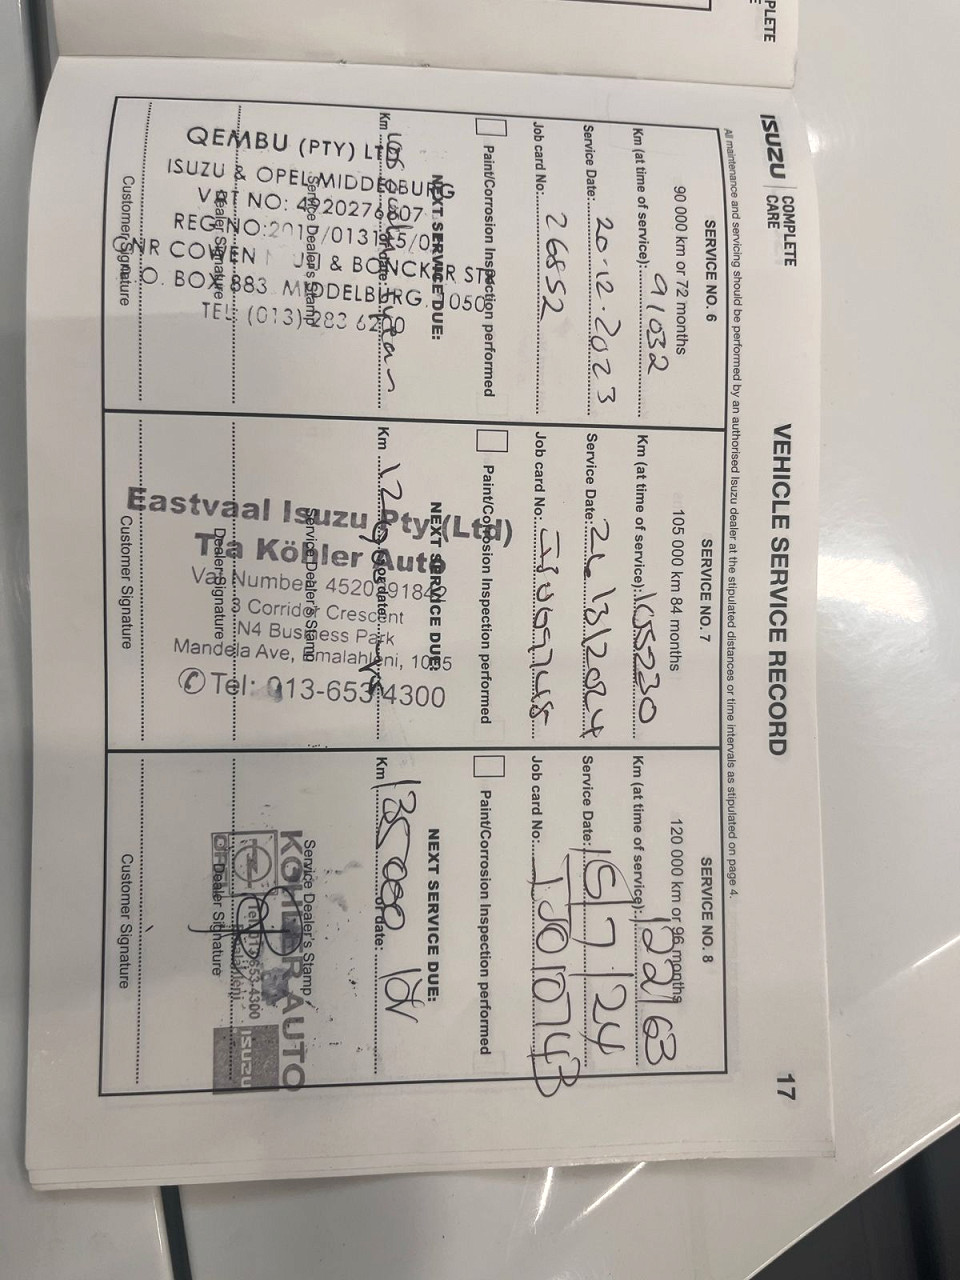 PLETE
ISUZU COMPLETE CARE
VEHICLE SERVICE RECORD
17
All maintenance and servicing should be performed by an authorised Isuzu dealer at the stipulated distances or time intervals as stipulated on page 4.
SERVICE NO. 6
90 000 km or 72 months
Km (at time of service): 91032
Service Date: 20-12-2023
Job card No: 26852
Paint/Corrosion Inspection performed
NEXT SERVICE DUE:
Km or date: 1 year
Service Dealer's Stamp
QEMBU (PTY) LTD
ISUZU & OPEL MIDDELBURG
VAT NO:
REG NO:
& BONCKER STR
P.O. BOX 883 MIDDELBURG. 1050
TEL (013) 283
Dealer Signature
Customer Signature
SERVICE NO.7
105 000 km 84 months
Km (at time of service): 105230
Service Date:
Job card No:
Paint/Corrosion Inspection performed
NEXT SERVICE DUE:
Km or date:
Service Dealer's Stamp
Eastvaal Isuzu Pty (Ltd)
T/a Köhler Auto
Vat Number
3 Corridor Crescent
N4 Business Park
Mandela Ave, Emalahleni, 1035
Tel: 013-653 4300
Dealer Signature
Customer Signature
SERVICE NO. 8
120 000 km or 96 months
Km (at time of service): 122163
Service Date: 15/7/24
Job card No:
Paint/Corrosion Inspection performed
NEXT SERVICE DUE:
Km 135000 or date:
Service Dealer's Stamp
KÖHLER AUTO
Tel: 013-653-4300
ISUZU
OPEL
Dealer Signature
Customer Signature